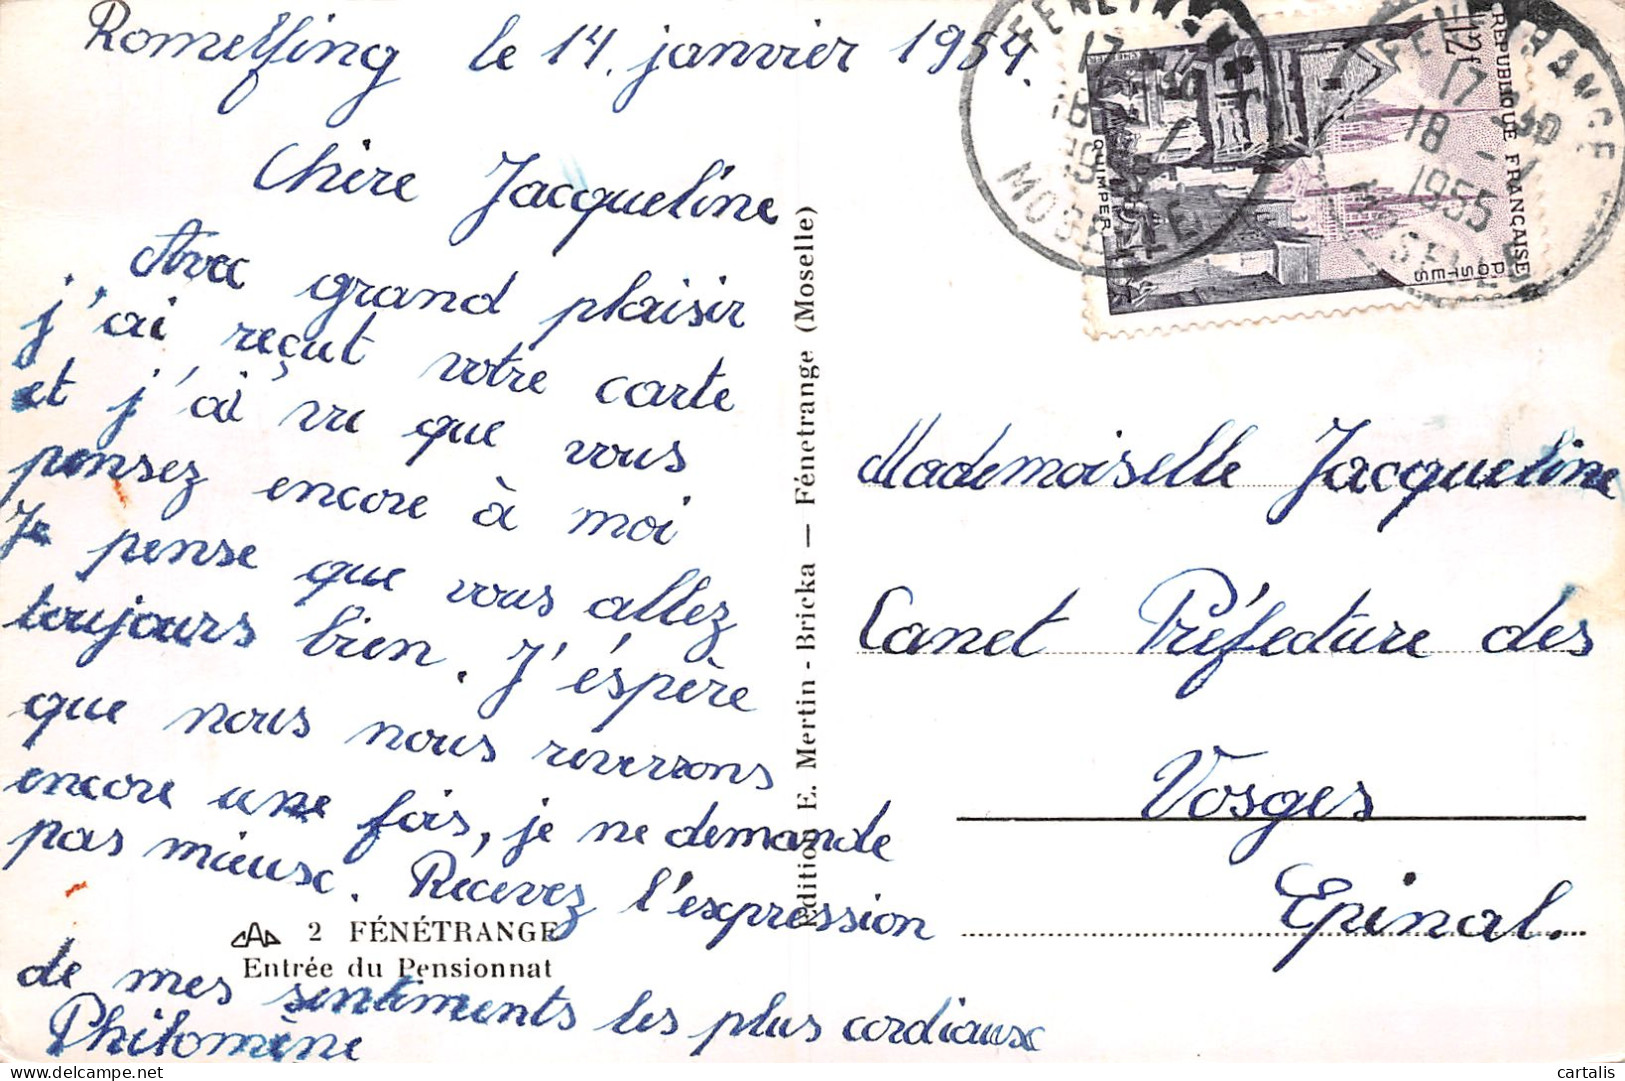 Romelfing le 14 janvier 1954.
Chère Jacqueline
Avec grand plaisir
j'ai reçut votre carte
et j'ai vu que vous
pensez encore à moi
Je pense que vous allez
toujours bien. J'éspère
que nous nous reverrons
encore une fois, je ne demande
pas mieux. Recevez l'expression
de mes sentiments les plus cordiaux
Philomène
2 FÉNÉTRANGE
Entrée du Pensionnat
Edition E. Mertin - Bricka — Fénetrange (Moselle)
FENETRANGE
17 30
18 - 1
1955
MOSELLE
FENETRANGE
17 30
18 - 1
1955
MOSELLE
12f
REPUBLIQUE FRANÇAISE
POSTES
QUIMPER
Mademoiselle Jacqueline
Canet Préfecture des
Vosges
Epinal.
cartalis